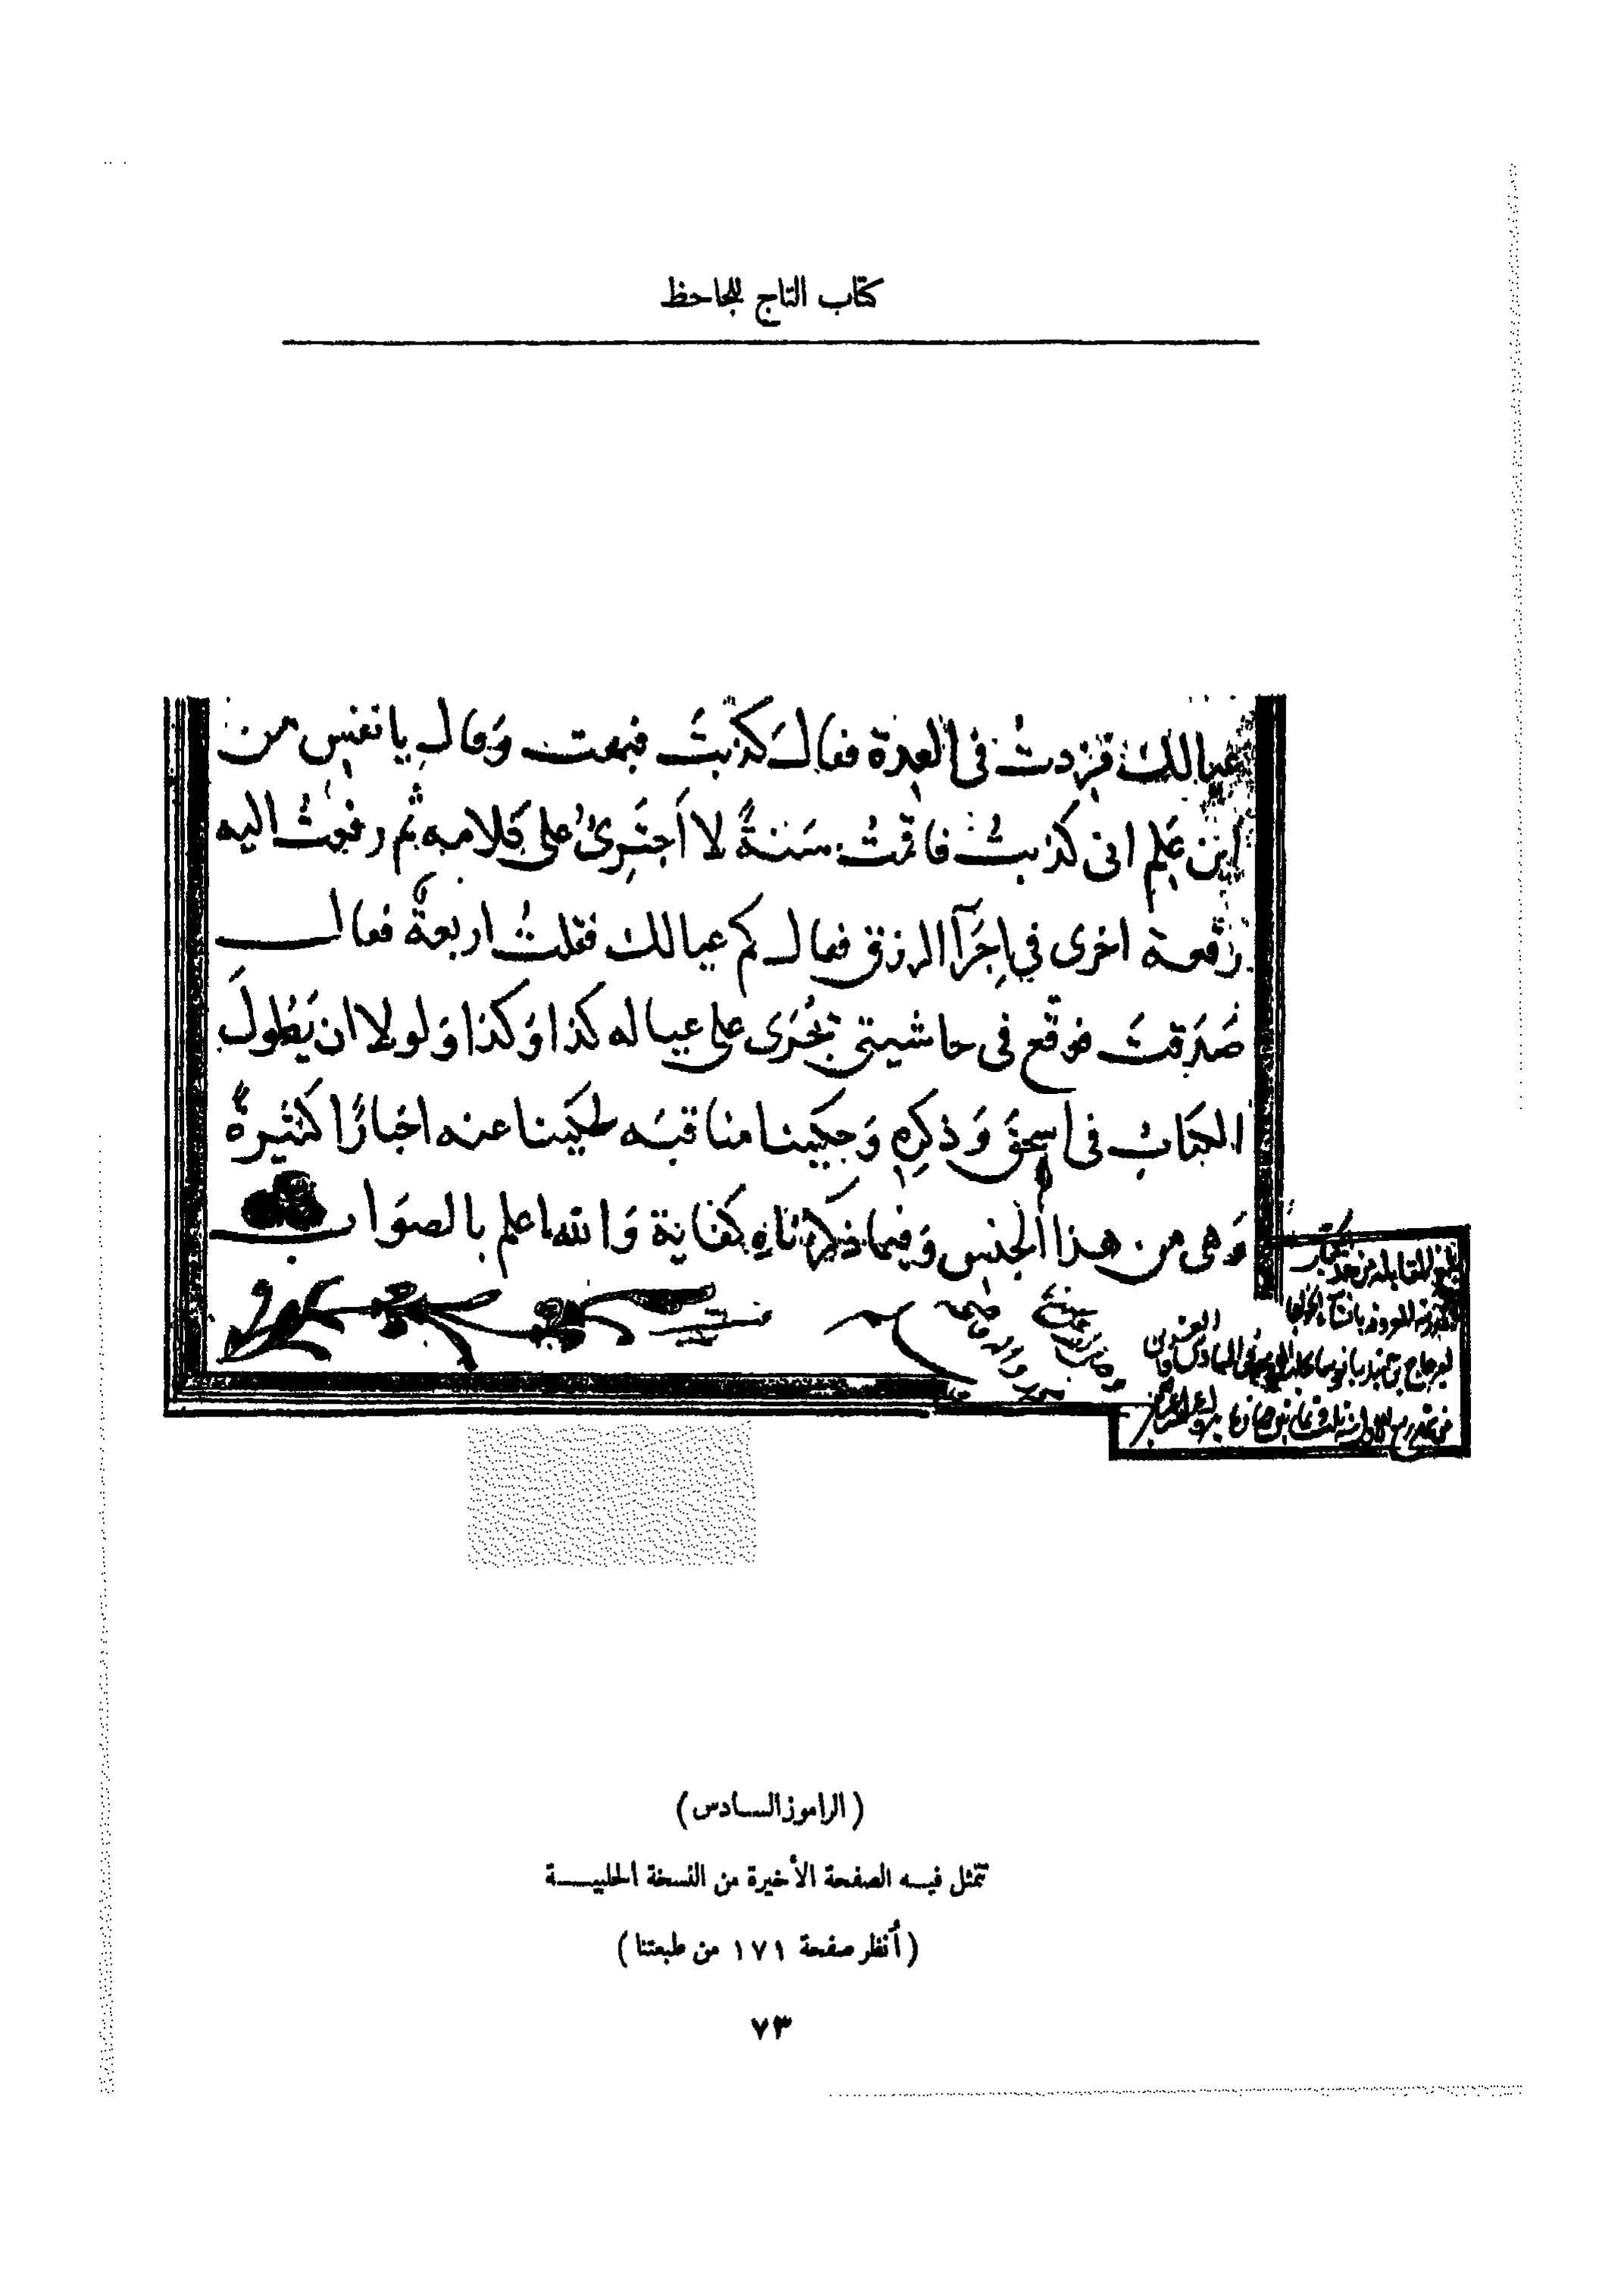 كتاب التاج للجاحظ
عيالك فزدتُ فى العِدة فقالَ كَذَبتَ فبهت وَقال يا نفسِ من
اين عَلِم انى كذبتُ فاقمتُ سَنةً لا اَجتَرِئُ على كلامِهِ ثم رفعتُ اليه
رقعة اخرى في اِجرَآ الرزق فقال كم عيالك فقلتُ اربعةٌ فقال
صَدَقتَ فوقّع فى حاشيتى يُجرَى على عياله كذا وَكذا وَلولا ان يَطولَ
الكِتابُ فى اسحقَ وَذكرِهِ وَحكَينا مناقبَه لحكَينا عنه اخبارًا كثيرةً
وَهى من هذا الجنس وَفيما ذكرناهِ كفاية وَالله اعلم بالصوَاب
(الراموز السادس)
تتمثل فيه الصفحة الأخيرة من النسخة الحلبية
(أنظر صفحة ١٧١ من طبعتنا)
٧٣